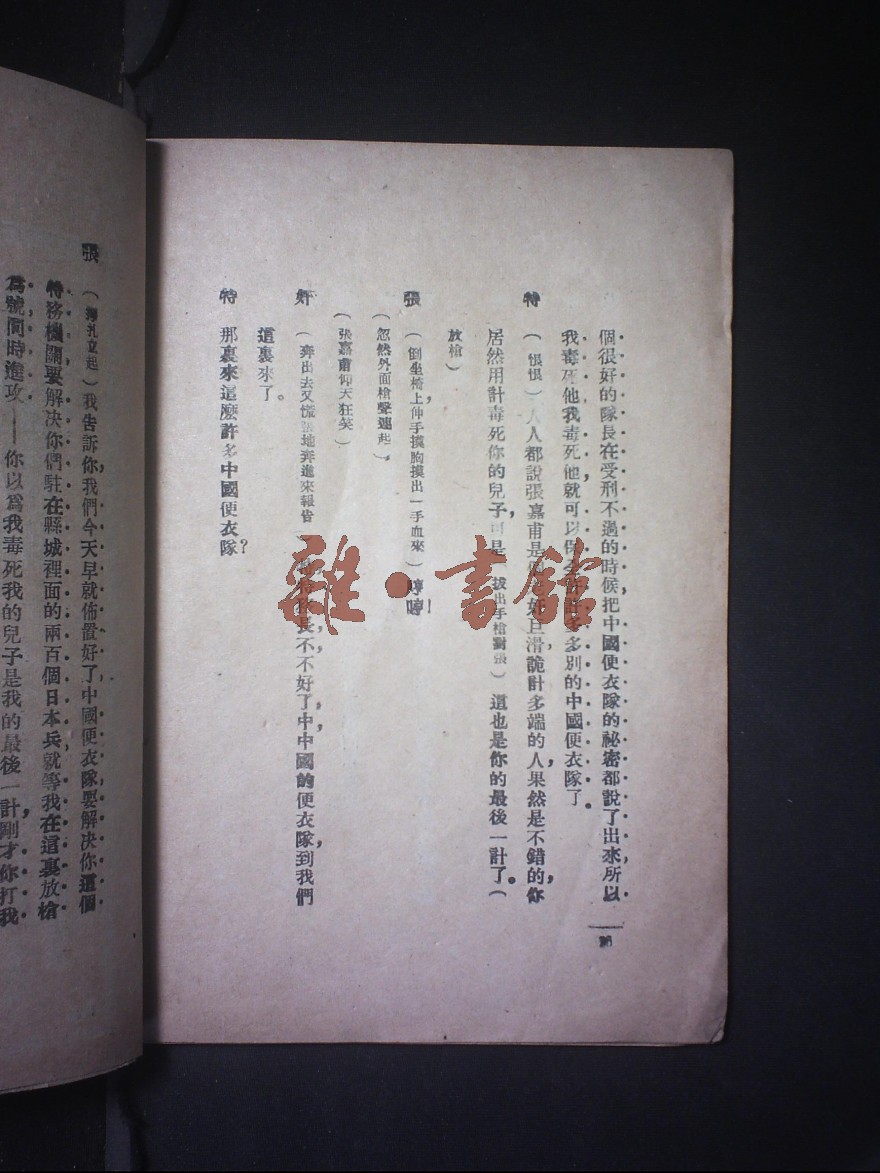 個很好的隊長在受刑不過的時候,把中國便衣隊的祕密都說了出來,所以
我毒死他,我毒死他就可以保全許許多多別的中國便衣隊了。
特 (恨恨)人人都說張嘉甫是個老奸巨滑,詭計多端的人,果然是不錯的,你
居然用計毒死你的兒子,可是(拔出手槍對張)這也是你的最後一計了。(
放槍)
張 (倒坐椅上,伸手摸胸摸出一手血來)哼哼!
(忽然外面槍聲連起)
(張嘉甫仰天狂笑)
奸 (奔出去又慌張地奔進來報告)特特隊長,不不好了,中中國的便衣隊,到我們
這裏來了。
特 那裏來這麼許多中國便衣隊?
26
雜·書館
張 (掙扎立起)我告訴你,我們今天早就佈置好了,中國便衣隊要解決你這個
特務機關,要解決你們駐在縣城裡面的兩百個日本兵,就等我在這裏放槍
為號,同時進攻——你以為我毒死我的兒子是我的最後一計,剛才你打我